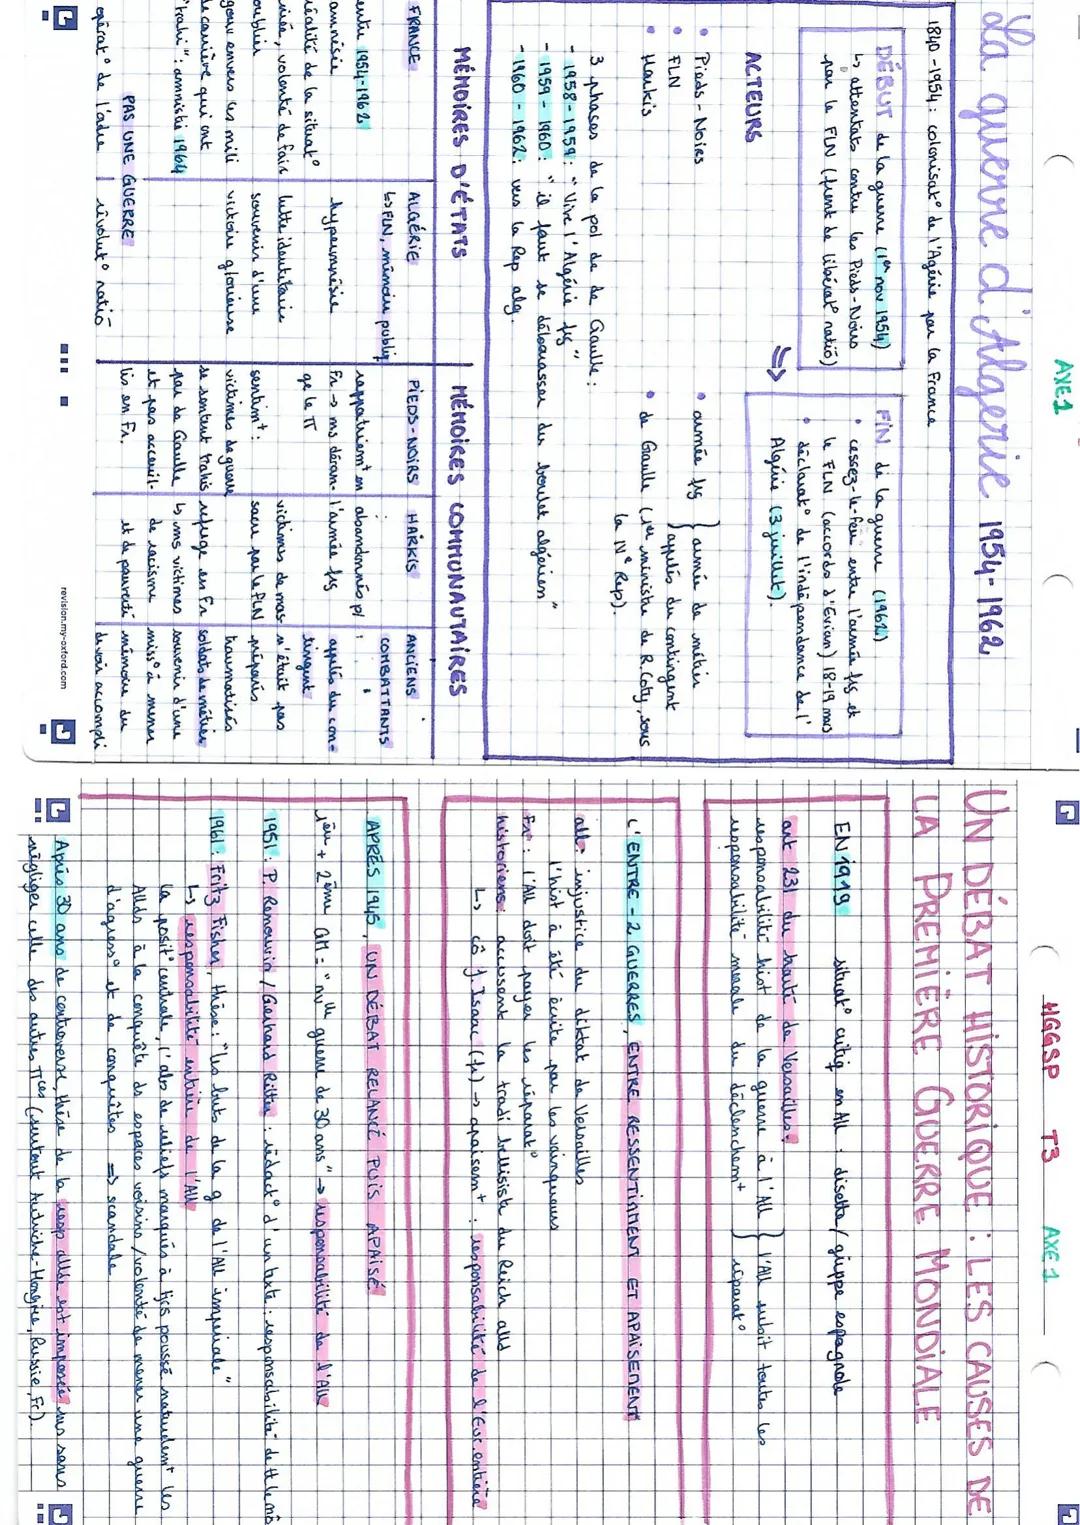 AXE 1
La guerre d'Algérie 1954-1962
1840-1954 : colonisat° de l'Algérie par la France
DÉBUT de la guerre (1er nov 1954)
↳ attentats contre les Pieds-Noirs
par le FLN (front de libérat° natio)
⇒
FIN de la guerre (1962)
• cessez-le-feu entre l'armée frs et
le FLN (accords d'Evian) 18-19 mars
• déclarat° de l'indépendance de l'
Algérie (3 juillet).
ACTEURS
• Pieds-Noirs
• FLN
• Harkis
• armée frs } armée de métier
appelés du contingent
• de Gaulle (1er ministre de R. Coty, sous
la IVe Rep).
3 phases de la pol de de Gaulle :
- 1958-1959 : "Vive l'Algérie frs"
- 1959-1960 : "il faut se débarasser du boulet algérien"
- 1960-1962 : vers la Rep alg.
MÉMOIRES D'ÉTATS
FRANCE
entre 1954-1962
amnésie
réalité de la situat°
niée, volonté de faire
oublier
gouv envers les mili
de carrière qui ont
"trahi" : amnistié 1964
PAS UNE GUERRE
opérat° de l'ordre
ALGÉRIE
↳ FLN, mémoire publiq
hypermnésie
lutte identitaire
souvenir d'une
victoire glorieuse
révolut° natio
MÉMOIRES COMMUNAUTAIRES
PIEDS-NOIRS
rappatriem+ en
Fr → ms déran-
ge le TT
sentim+ :
victimes de guerre
se sentent trahis
par de Gaulle
et pas accueil-
lis en Fr.
HARKIS
abandonnés p/
l'armée frs
victimes de mas-
sacre par le FLN
refuge en Fr
↳ ms victimes
de racisme
et de pauvreté
ANCIENS
COMBATTANTS
appelés du con-
tingent
n'était pas
préparés
traumatisés
soldats de métier
souvenir d'une
miss° à mener
mémoire du
devoir accompli
revision.my-oxford.com
HGGSP T3 AXE 1
UN DÉBAT HISTORIQUE : LES CAUSES DE
LA PREMIÈRE GUERRE MONDIALE
EN 1919 situat° critiq en All : disette / grippe espagnole
art 231 du traité de Versailles :
responsabilité hist de la guerre à l'All } l'All subit toutes les
responsabilité morale du déclenchem+ réparat°
L'ENTRE-2 GUERRES, ENTRE RESSENTIMENT ET APAISEMENT
all : injustice du diktat de Versailles
l'hist à été écrite par les vainqueurs
fr : l'All doit payer les réparat°
historiens : accusent la tradi bellisiste du Reich alld
↳ cô J. Isaac (fr) → apaisem+ : responsabilité de l'Eur. entière
APRÈS 1945, UN DÉBAT RELANCÉ PUIS APAISÉ
1ère + 2ème GM = "nvlle guerre de 30 ans" → responsabilité de l'All
1951 : P. Renouvin / Gerhard Ritter : rédact° d'un texte : responsabilité de tt le m°
1961 : Fritz Fisher, thèse : "les buts de la g de l'All imperiale"
↳ responsabilité entière de l'All
la posit° centrale, l'abs de reliefs marqués à tjrs poussé naturellem+ les
Allds à la conquête des espaces voisins / volonté de mener une guerre
d'agress° et de conquêtes ⇒ scandale
Après 30 ans de controverse, thèse de la resp allde est imposée ms sans
négliger celle des autres Tces (surtout Autriche-Hongrie, Russie, Fr).